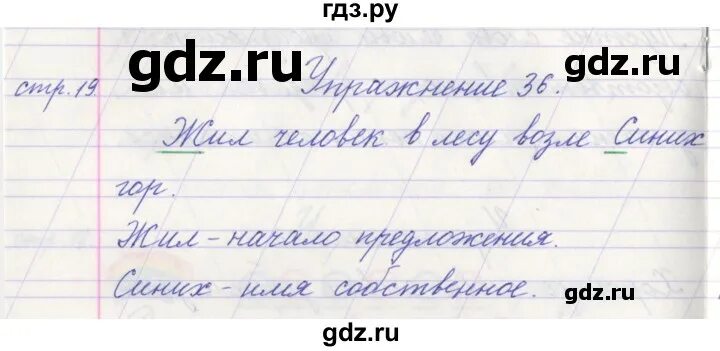 гдз.ру
стр. 19. Упражнение 36.
gdz.ru
Жил человек в лесу возле Синих
гор.
Жил - начало предложения.
Синих - имя собственное.
gdz.ru
gdz.ru